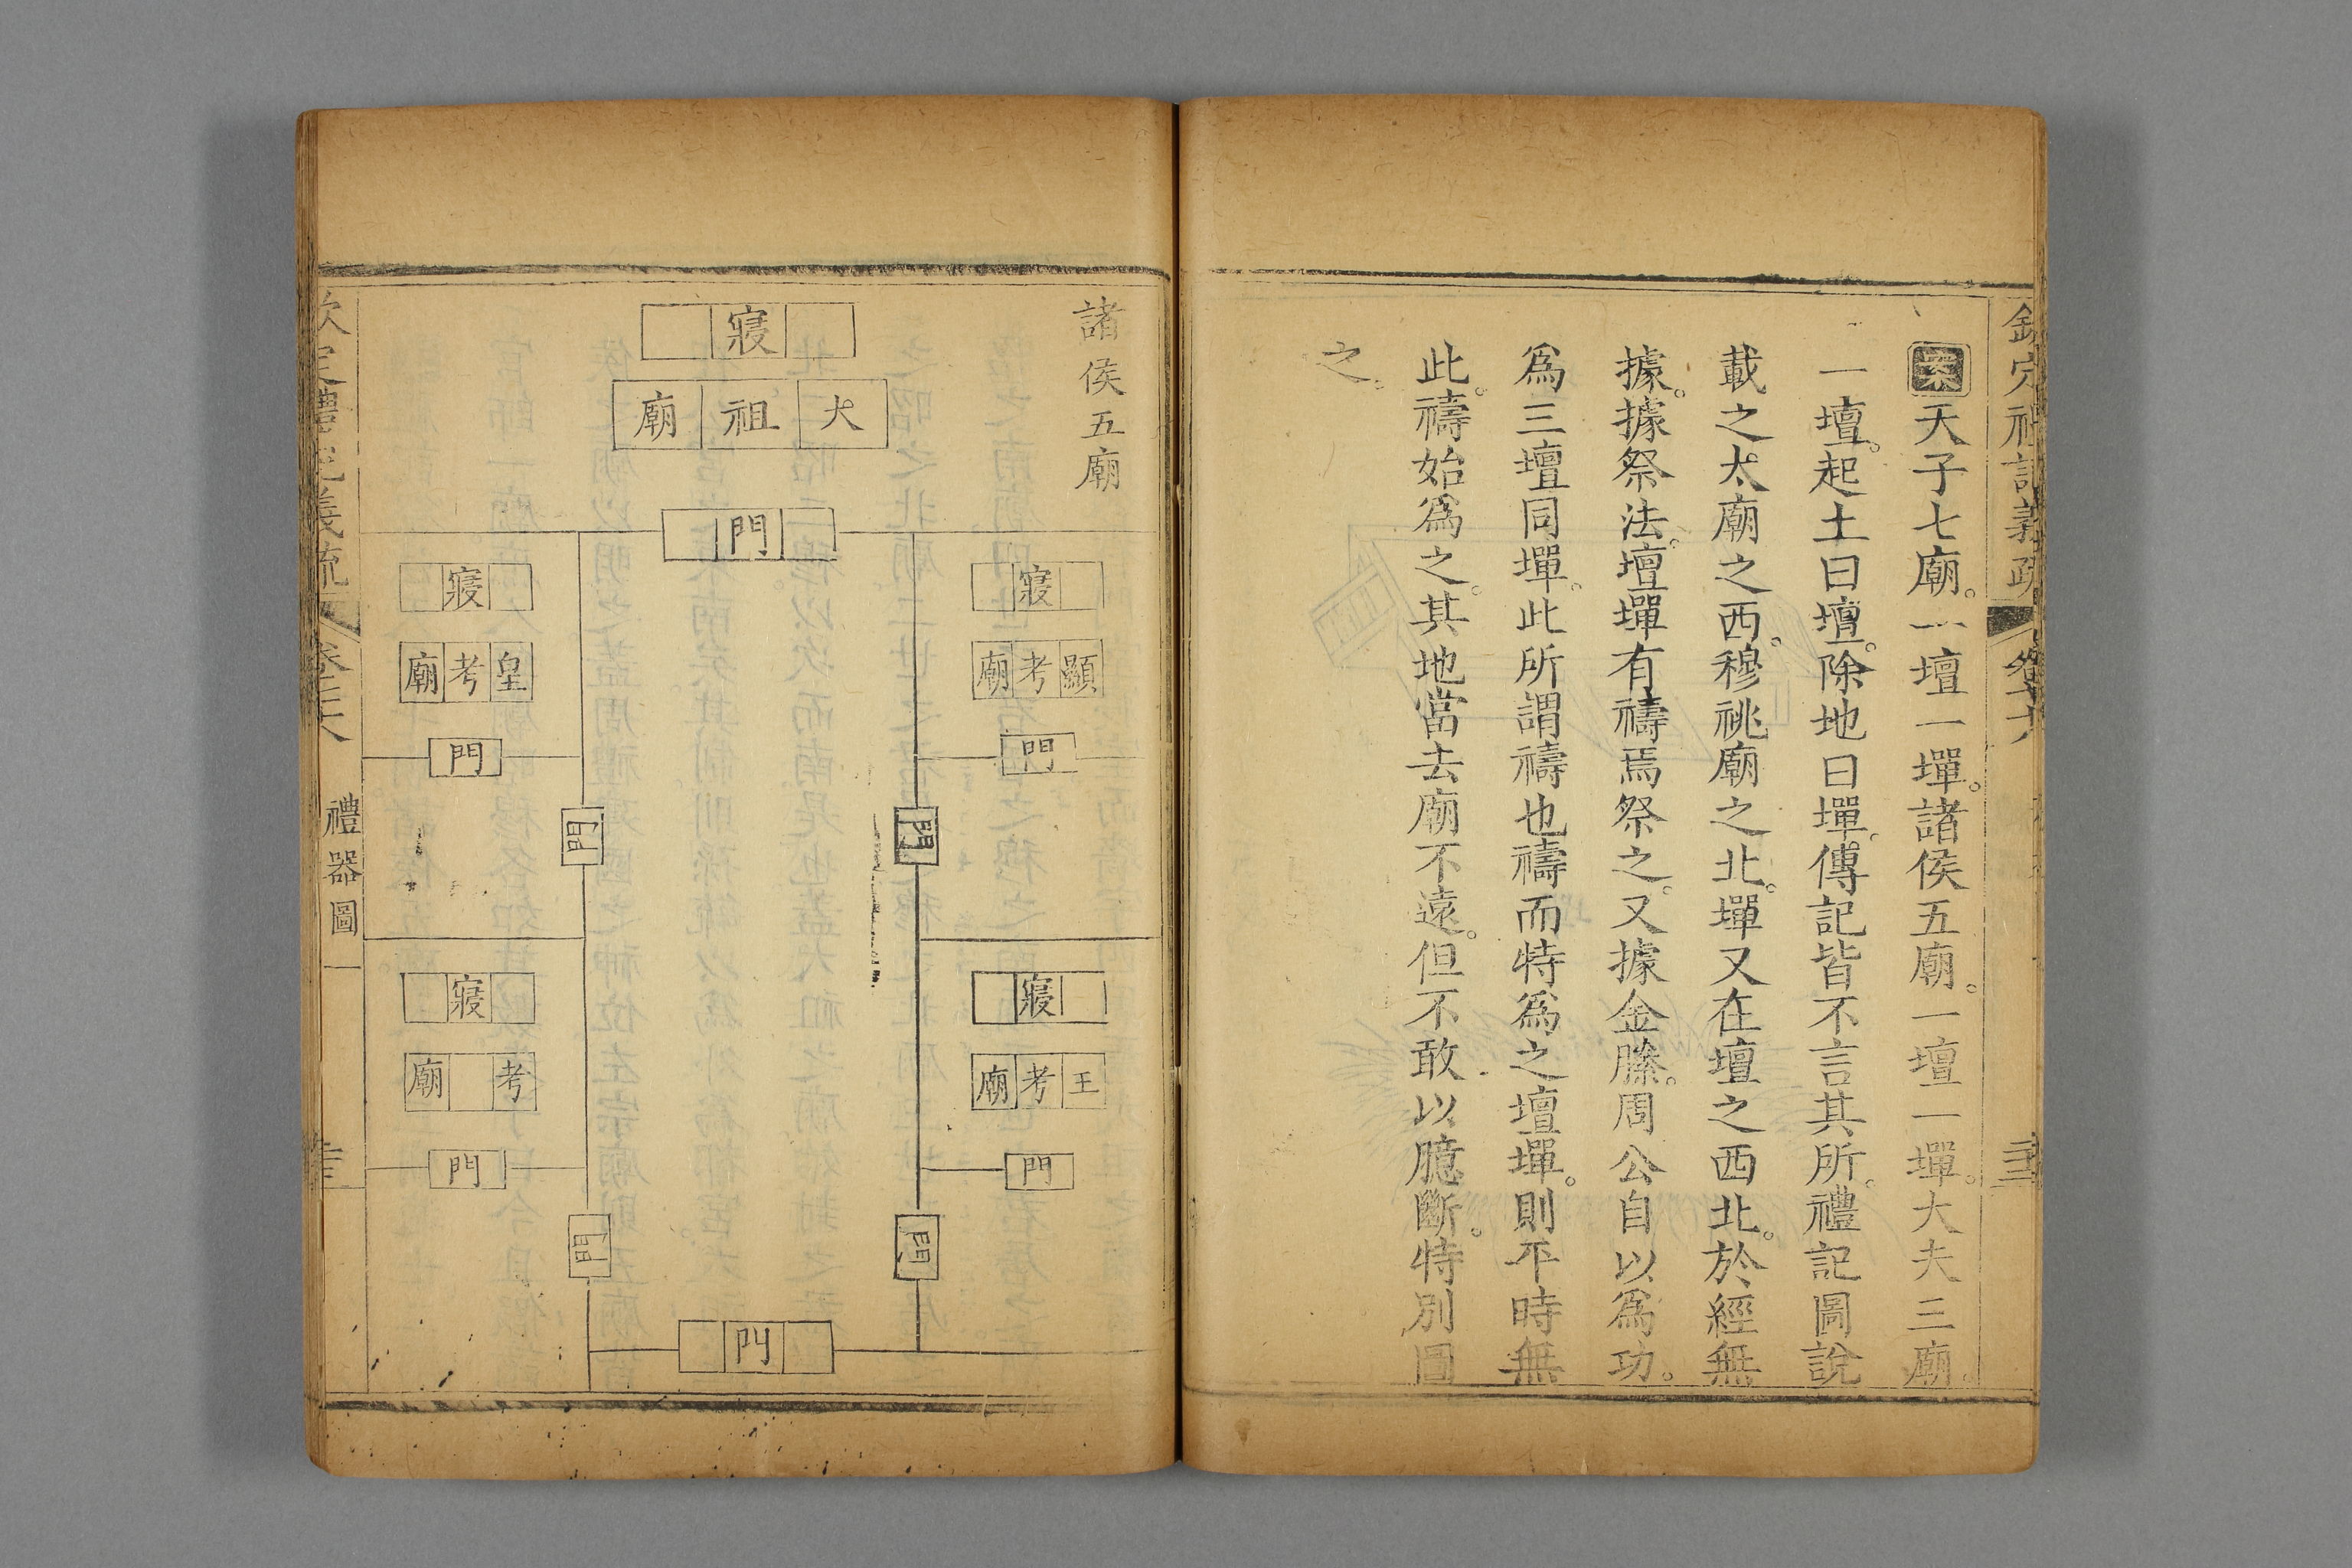 案天子七廟。一壇一墠。諸侯五廟。一壇一墠。大夫三廟。
一壇。起土曰壇。除地曰墠。傳記皆不言其所。禮記圖說
載之太廟之西。穆祧廟之北。墠又在壇之西北。於經無
據。據祭法。壇墠有禱焉祭之。又據金縢。周公自以爲功。
爲三壇同墠。此所謂禱也禱而特爲之壇墠。則平時無
此。禱始爲之。其地當去廟不遠。但不敢以臆斷。特別圖
之。
諸侯五廟
寢
太祖廟
門
寢
顯考廟
門
門
寢
王考廟
門
門
寢
皇考廟
門
門
寢
考廟
門
門
門
禮器圖